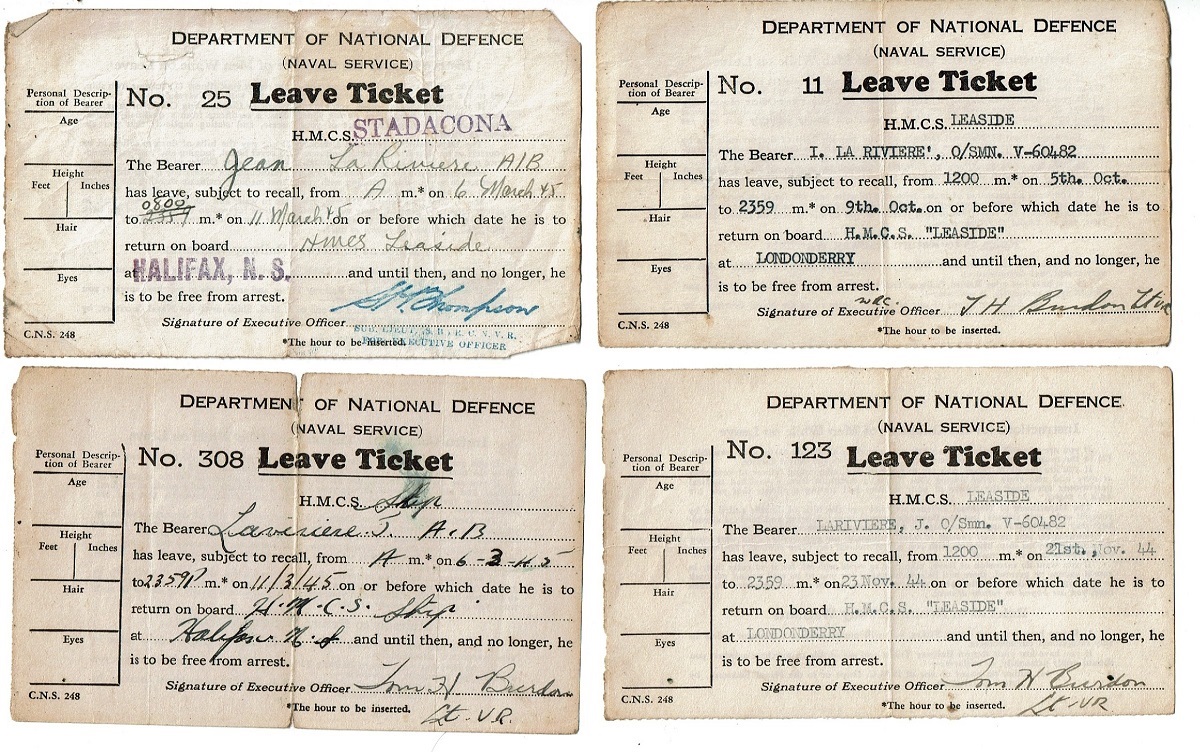 DEPARTMENT OF NATIONAL DEFENCE
(NAVAL SERVICE)
Personal Descrip-
tion of Bearer
No. 25 Leave Ticket
Age
H.M.C.S. STADACONA
The Bearer Jean La Riviere A/B
Height
Feet Inches
has leave, subject to recall, from A m.* on 6 March 45
0800
to 2359 m.* on 11 March 45 on or before which date he is to
Hair
return on board HMCS Leaside
Eyes
at HALIFAX, N. S. and until then, and no longer, he
is to be free from arrest.
Signature of Executive Officer Thompson
SUB. LIEUT. R. C. N. V. R.
FOR EXECUTIVE OFFICER
C.N.S. 248
*The hour to be inserted.
DEPARTMENT OF NATIONAL DEFENCE
(NAVAL SERVICE)
Personal Descrip-
tion of Bearer
No. 11 Leave Ticket
Age
H.M.C.S. LEASIDE
The Bearer I. LA RIVIERE', O/SMN. V-60482
Height
Feet Inches
has leave, subject to recall, from 1200 m.* on 5th. Oct.
to 2359 m.* on 9th. Oct. on or before which date he is to
Hair
return on board H.M.C.S. "LEASIDE"
Eyes
at LONDONDERRY and until then, and no longer, he
is to be free from arrest.
Signature of Executive Officer T H Burdon Lt VR
C.N.S. 248
*The hour to be inserted.
DEPARTMENT OF NATIONAL DEFENCE
(NAVAL SERVICE)
Personal Descrip-
tion of Bearer
No. 308 Leave Ticket
Age
H.M.C.S. Ship
The Bearer Lariviere J. A.B
Height
Feet Inches
has leave, subject to recall, from A m.* on 6-3-45
to 2359P m.* on 11/3/45 on or before which date he is to
Hair
return on board H.M.C.S. Ship
Eyes
at Halifax N.S and until then, and no longer, he
is to be free from arrest.
Signature of Executive Officer Tom H Burdon
Lt. VR.
C.N.S. 248
*The hour to be inserted.
DEPARTMENT OF NATIONAL DEFENCE
(NAVAL SERVICE)
Personal Descrip-
tion of Bearer
No. 123 Leave Ticket
Age
H.M.C.S. LEASIDE
The Bearer LARIVIERE, J. O/Smn. V-60482
Height
Feet Inches
has leave, subject to recall, from 1200 m.* on 21st. Nov. 44
to 2359 m.* on 23 Nov. 44 on or before which date he is to
Hair
return on board H.M.C.S. "LEASIDE"
Eyes
at LONDONDERRY and until then, and no longer, he
is to be free from arrest.
Signature of Executive Officer Tom H Burdon
Lt. VR
C.N.S. 248
*The hour to be inserted.